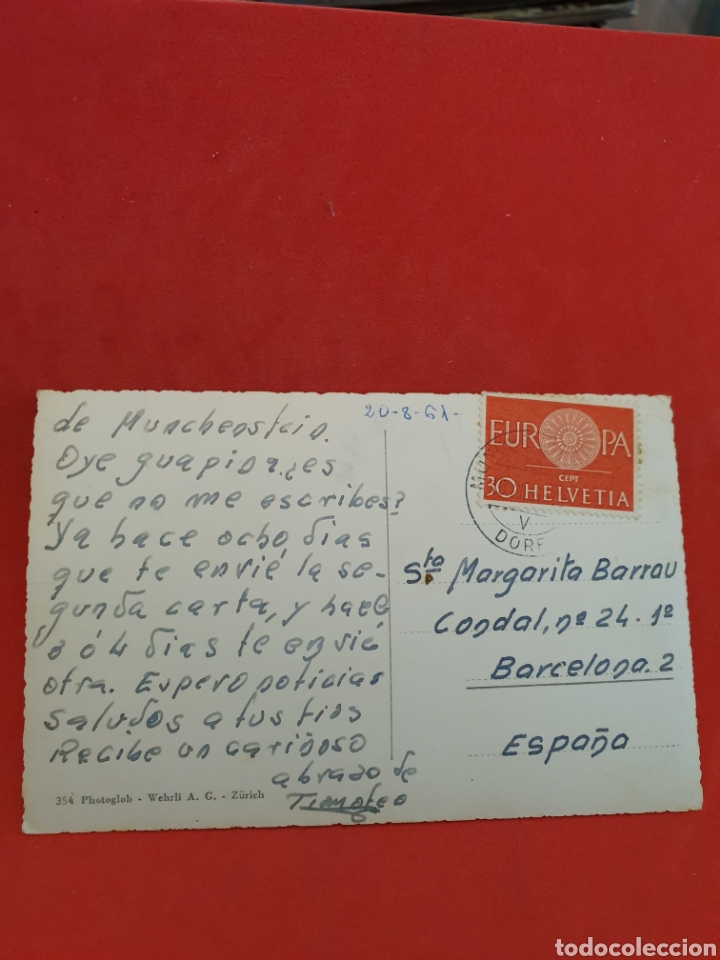 20-8-61-
de Munchenstein.
Oye guapina ¿es
que no me escribes?
Ya hace ocho días
que te envié la se-
gunda carta, y hace
3 ó 4 días te envié
otra. Espero noticias
Saludos a tus tíos
Recibe un cariñoso
abrazo de
Timoteo
354 Photoglob - Wehrli A. G. - Zürich
EUROPA
CEPT
30 HELVETIA
V
DORF
Sta Margarita Barrau
Condal, nº 24 - 1º
Barcelona. 2
España
todocoleccion